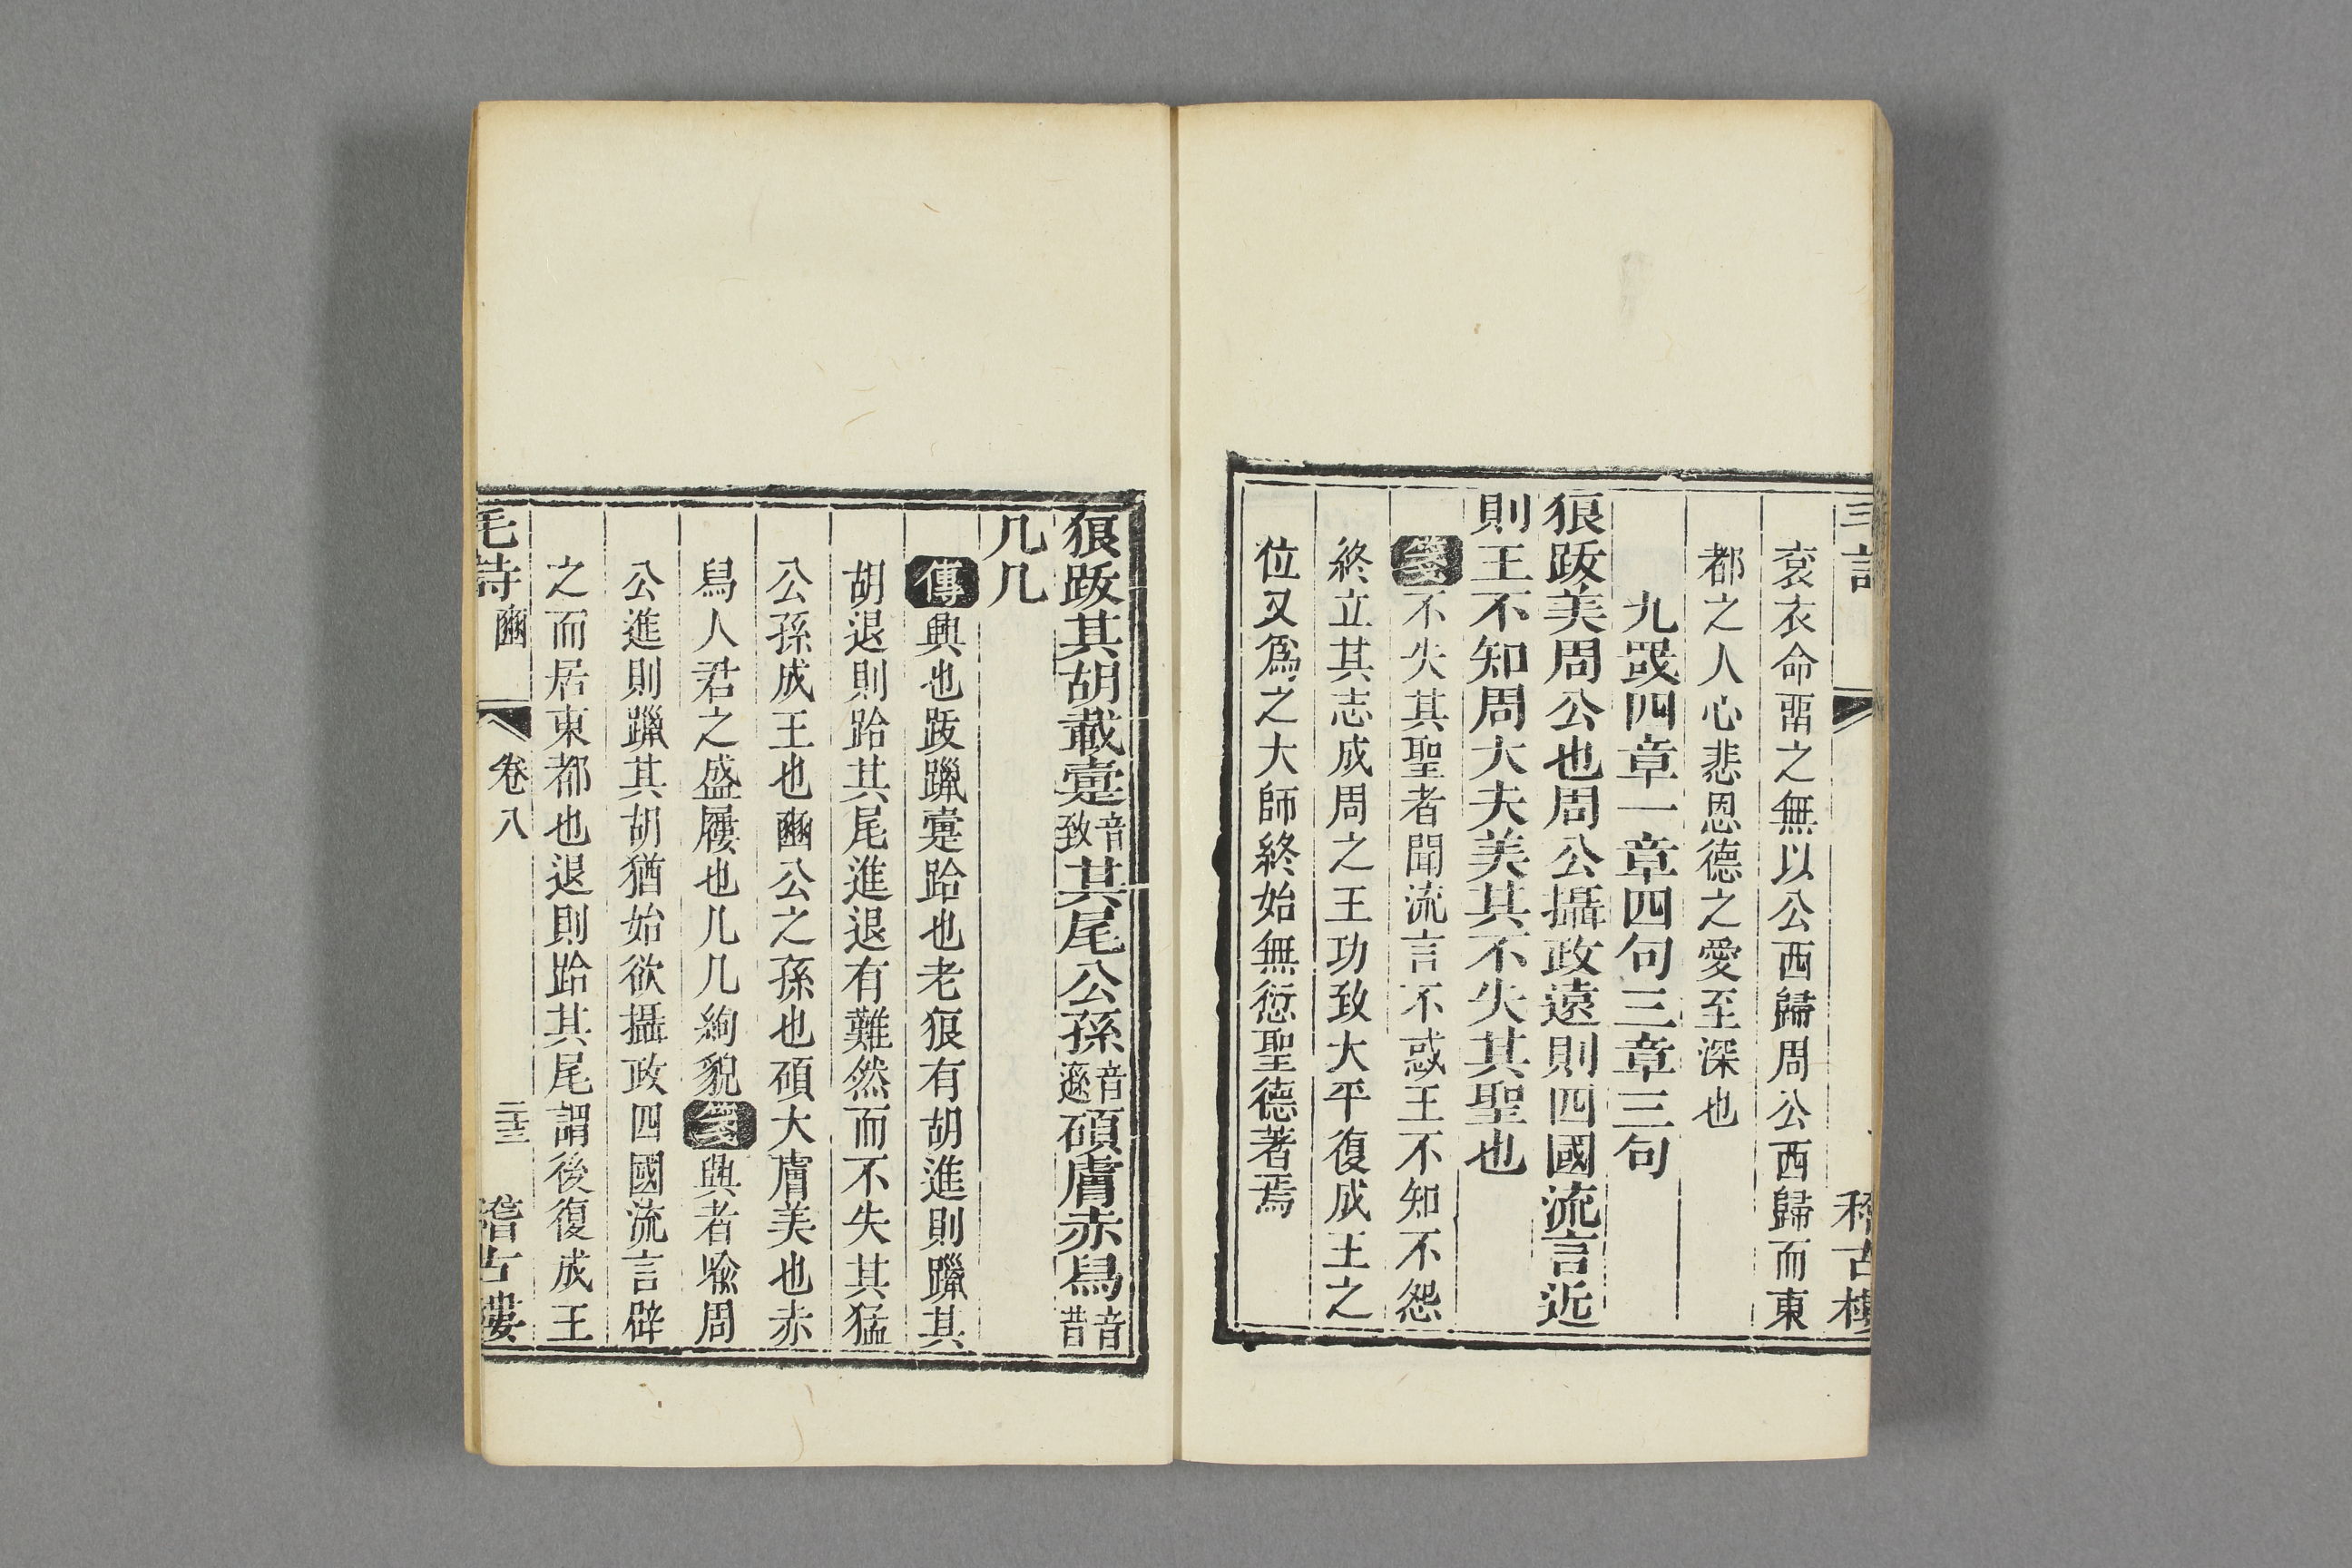 袞衣命畱之無以公西歸周公西歸而東
都之人心悲恩德之愛至深也
九罭四章一章四句三章三句
狼跋美周公也周公攝政遠則四國流言近
則王不知周大夫美其不失其聖也
箋不失其聖者聞流言不惑王不知不怨
終立其志成周之王功致大平復成王之
位又爲之大師終始無愆聖德著焉
狼跋其胡載疐音致其尾公孫音遜碩膚赤舄音昔
几几
傳興也跋躐疐跲也老狼有胡進則躐其
胡退則跲其尾進退有難然而不失其猛
公孫成王也豳公之孫也碩大膚美也赤
舄人君之盛屨也几几絇貌箋興者喻周
公進則躐其胡猶始欲攝政四國流言辟
之而居東都也退則跲其尾謂後復成王
毛詩 豳 卷八 二十三 稽古樓